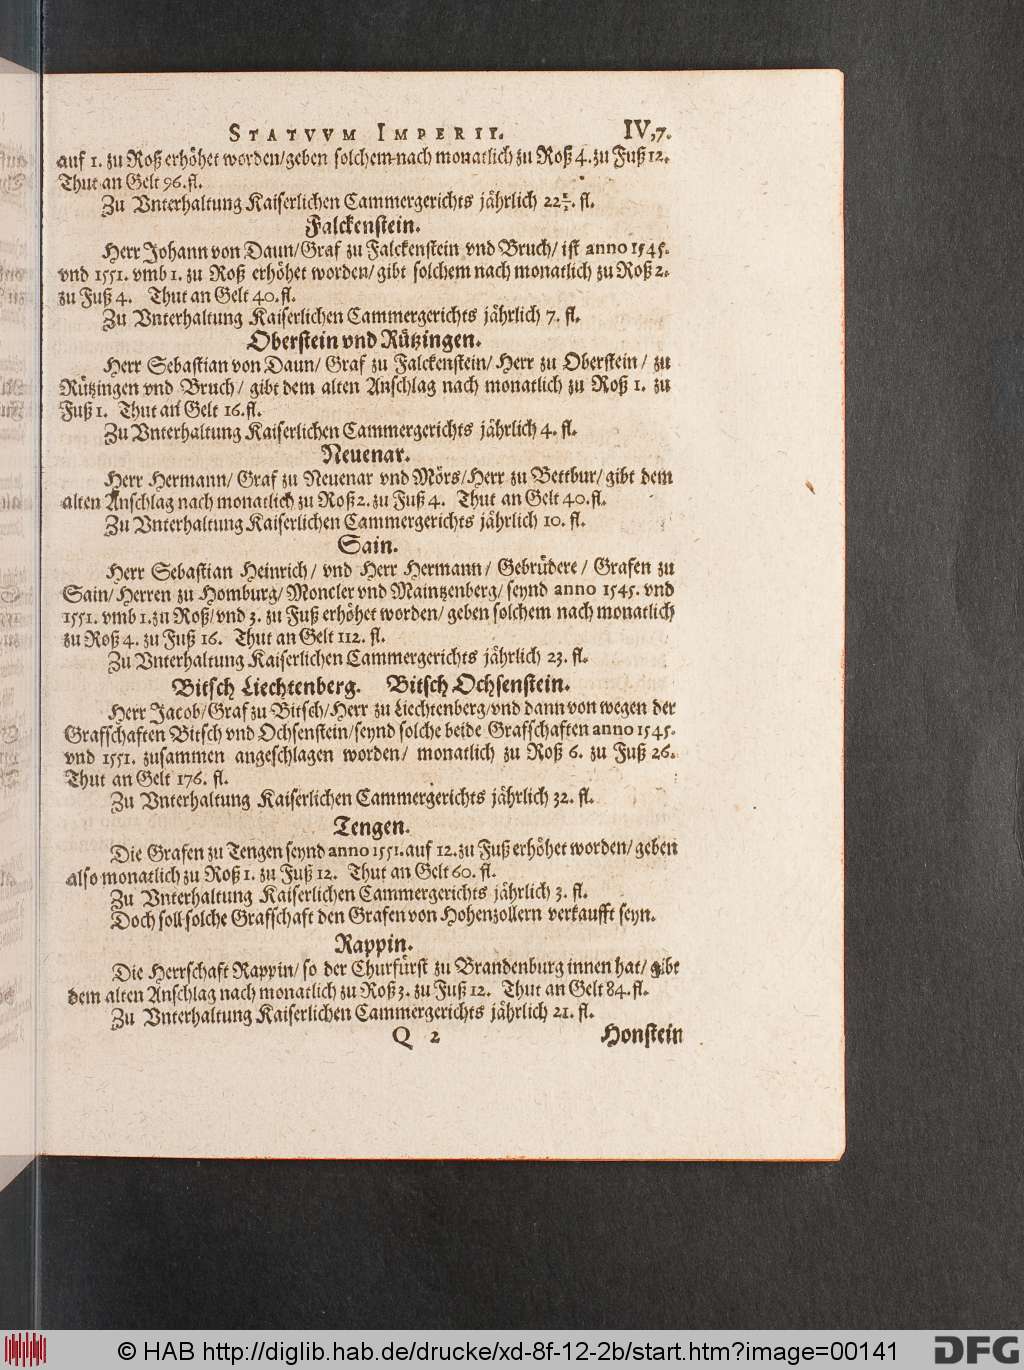 STATVVM IMPERII. IV,7.
auf 1. zu Roß erhöhet worden/geben solchem nach monatlich zu Roß 4. zu Fuß 12.
Thut an Gelt 96. fl.
Zu Vnterhaltung Kaiserlichen Cammergerichts jährlich 22½. fl.
Falckenstein.
Herr Johann von Daun/Graf zu Falckenstein vnd Bruch/ ist anno 1545.
vnd 1551. vmb 1. zu Roß erhöhet worden/ gibt solchem nach monatlich zu Roß 2.
zu Fuß 4. Thut an Gelt 40. fl.
Zu Vnterhaltung Kaiserlichen Cammergerichts jährlich 7. fl.
Oberstein vnd Rützingen.
Herr Sebastian von Daun/ Graf zu Falckenstein/ Herr zu Oberstein / zu
Rützingen vnd Bruch / gibt dem alten Anschlag nach monatlich zu Roß 1. zu
Fuß 1. Thut an Gelt 16. fl.
Zu Vnterhaltung Kaiserlichen Cammergerichts jährlich 4. fl.
Neuenar.
Herr Hermann/ Graf zu Neuenar vnd Mörs/Herr zu Bettbur/ gibt dem
alten Anschlag nach monatlich zu Roß 2. zu Fuß 4. Thut an Gelt 40. fl.
Zu Vnterhaltung Kaiserlichen Cammergerichts jährlich 10. fl.
Sain.
Herr Sebastian Heinrich/ vnd Herr Hermann/ Gebrüdere / Grafen zu
Sain/ Herren zu Homburg/ Moncler vnd Maintzenberg/ seynd anno 1545. vnd
1551. vmb 1. zu Roß/ vnd 3. zu Fuß erhöhet worden/ geben solchem nach monatlich
zu Roß 4. zu Fuß 16. Thut an Gelt 112. fl.
Zu Vnterhaltung Kaiserlichen Cammergerichts jährlich 23. fl.
Bitsch Liechtenberg. Bitsch Ochsenstein.
Herr Jacob/Graf zu Bitsch/Herr zu Liechtenberg/vnd dann von wegen der
Grafschaften Bitsch vnd Ochsenstein/seynd solche beide Grafschaften anno 1545.
vnd 1551. zusammen angeschlagen worden/ monatlich zu Roß 6. zu Fuß 26.
Thut an Gelt 176. fl.
Zu Vnterhaltung Kaiserlichen Cammergerichts jährlich 32. fl.
Tengen.
Die Grafen zu Tengen seynd anno 1551. auf 12. zu Fuß erhöhet worden/ geben
also monatlich zu Roß 1. zu Fuß 12. Thut an Gelt 60. fl.
Zu Vnterhaltung Kaiserlichen Cammergerichts jährlich 3. fl.
Doch soll solche Grafschaft den Grafen von Hohenzollern verkaufft seyn.
Rappin.
Die Herrschaft Rappin/ so der Churfürst zu Brandenburg innen hat/ gibt
dem alten Anschlag nach monatlich zu Roß 3. zu Fuß 12. Thut an Gelt 84. fl.
Zu Vnterhaltung Kaiserlichen Cammergerichts jährlich 21. fl.
Q 2 Honstein
© HAB http://diglib.hab.de/drucke/xd-8f-12-2b/start.htm?image=00141 DFG